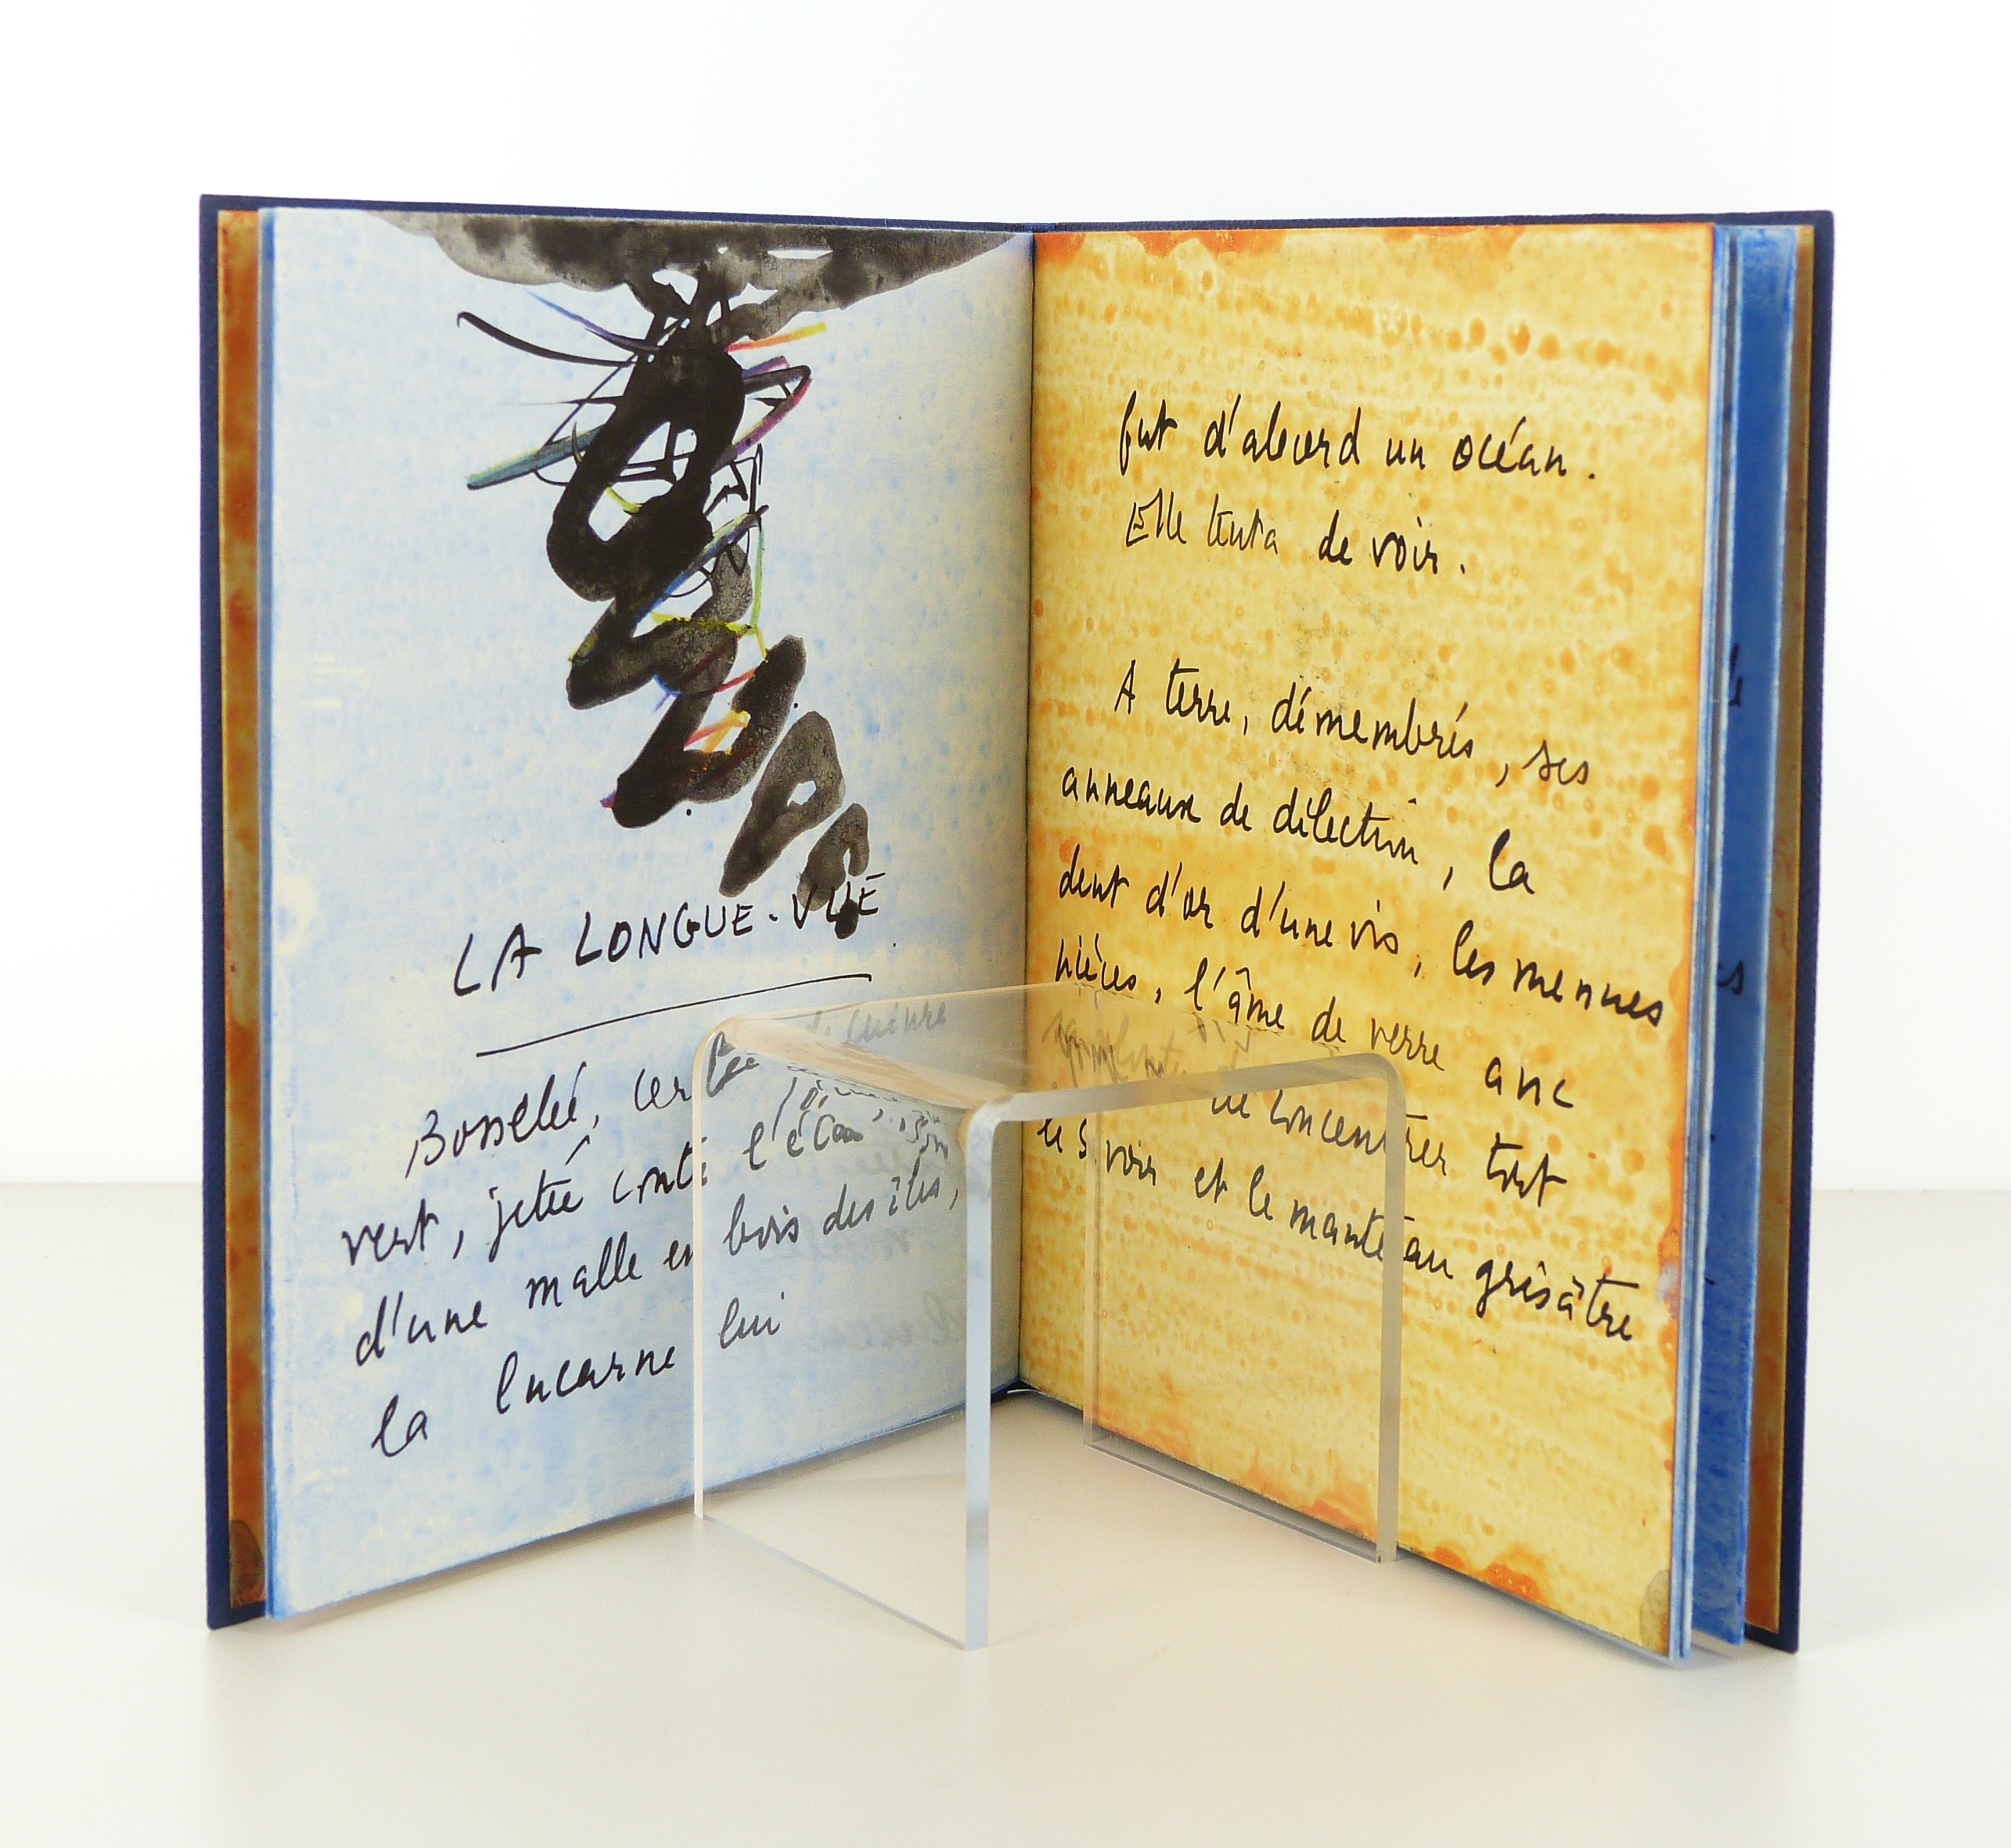 LA LONGUE-VUE
Bosselée, cerclée de cuivre
vert, jetée contre l'écaille
d'une malle en bois des îles,
la lucarne lui
fut d'abord un océan.
Elle tenta de voir.
A terre, démembrés, ses
anneaux de dilection, la
dent d'or d'une vis, les menues
pièces, l'âme de verre avec
de concentrer tout
le voir et le manteau grisâtre